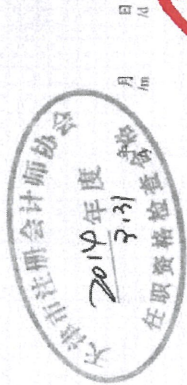 天津市注册会计师协会
2014年度
3131
任职资格检查合格
月 日
/m /d